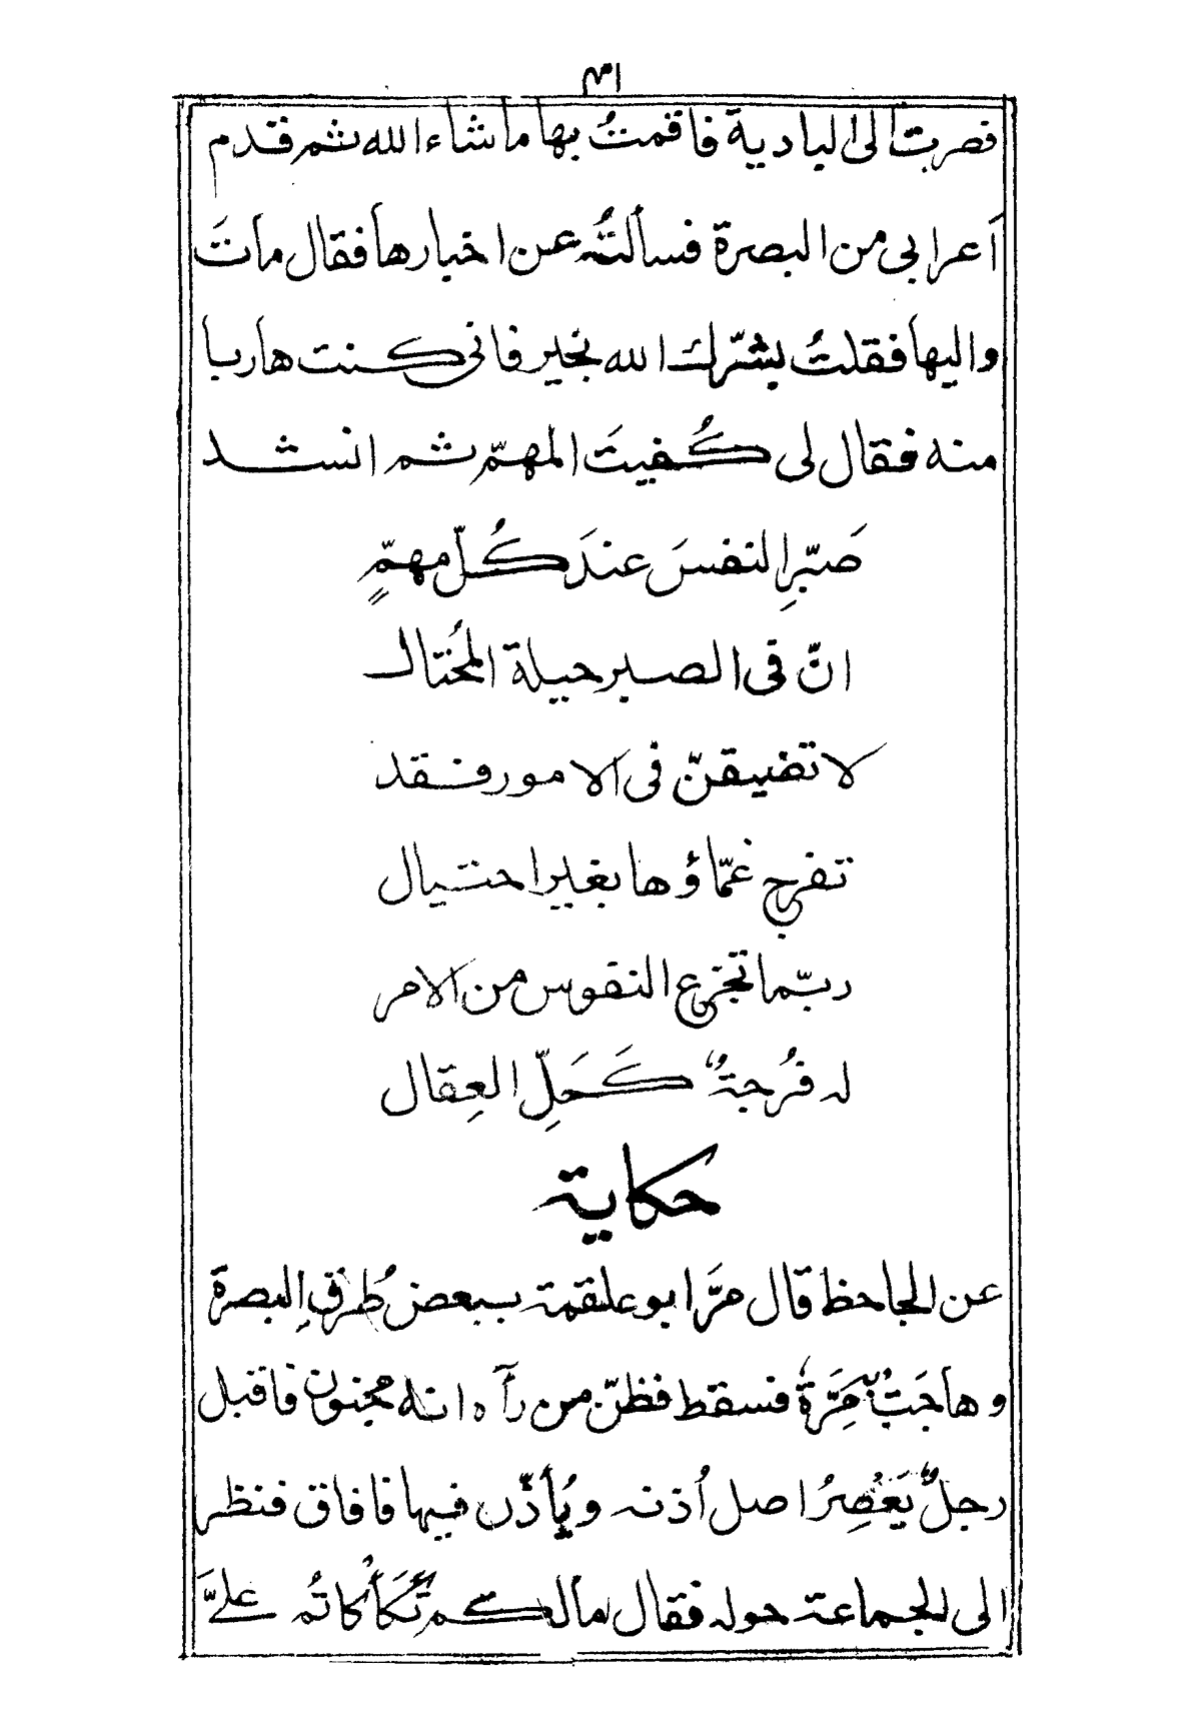 ٣١
فصرت الى البادية فاقمتُ بها ما شاء الله ثم قدم
اَعرابى من البصرة فسألتُه عن اخبارها فقال ماتَ
واليها فقلتُ بشّرك الله بخير فانى كنت هاربا
منه فقال لى كُفيتَ المهمّ ثم انشد
صَبّرِ النفسَ عندَ كُلّ مهمّ
انّ فى الصبر حيلة المُحتال
لا تضيقنّ فى الامور فقد
تفرج غمّاؤها بغير احتيال
ربّما تجزع النفوس من الامر
له فُرجةٌ كَحَلِّ العِقال
حكاية
عن الجاحظ قال مرَّ ابو علقمة ببعض طُرقِ البصرة
وهاجَتْ بِهِ مِرَّةٌ فسقط فظنّ من رآه انه مجنون فاقبل
رجلٌ يَعْصِرُ اصل اُذنه ويُأذّن فيها فافاق فنظر
الى الجماعة حوله فقال مالكم تَكَأْكَأتُم علىَّ